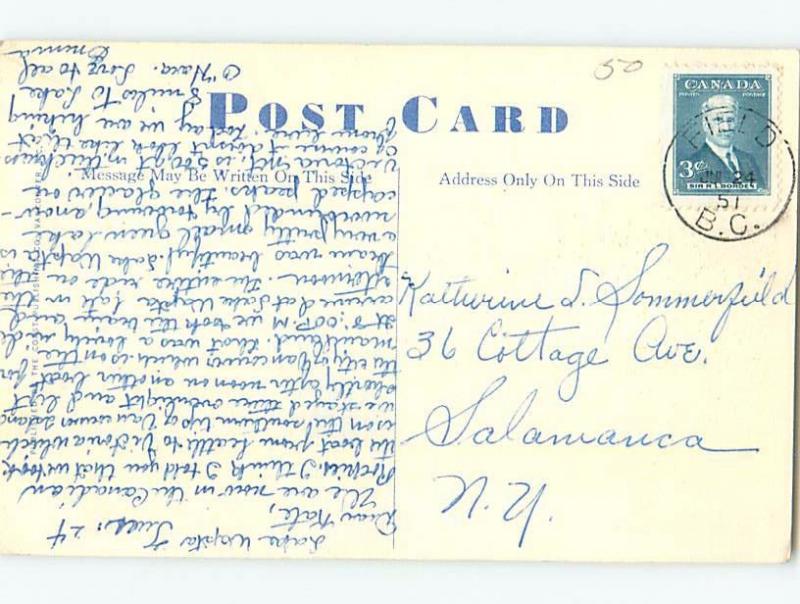 50
POST CARD
Message May Be Written On This Side
Address Only On This Side
CANADA
POSTES POSTAGE
3¢
SIR R.L. BORDEN
FIELD
JUL 24
51
B.C.
Katherine S. Sommerfield
36 Cottage Ave.
Salamanca
N.Y.
Lake Wapta Tues. 24
Dear Kate,
We are now in the Canadian
Rockies. I think I told you that we took
the boat from Seattle to Victoria which
is on the southern tip of Vancouver Island
we stayed there overnight and left
shortly after noon on another boat for
the city of Vancouver which is on the
mainland. That was a lovely ride
at 8:00 P.M we took the train and
arrived at Lake Wapta late in the
afternoon. The entire ride on the
train was beautiful. Lake Wapta is
a very pretty small green lake
surrounded by towering, snow-
capped peaks. The glacier on
Victoria Mt. is 300 ft in thickness
of course it doesn't look like that
from here. Today we are hiking
8 miles to Lake
O'Hara. Love to all
Emma